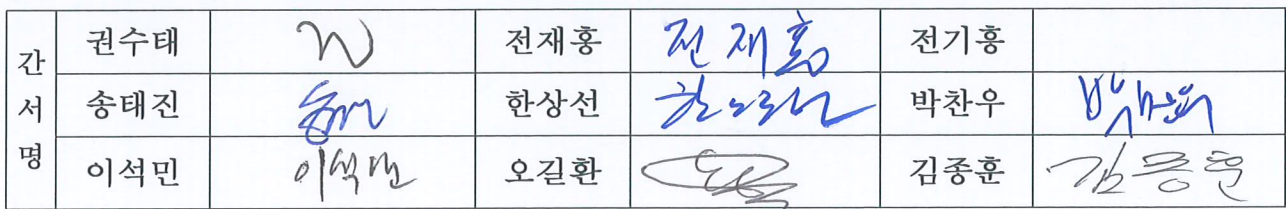 간 서 명
권수태 전재홍 전재홍 전기흥
송태진 한상선 박찬우
이석민 이석민 오길환 김종훈 김종훈